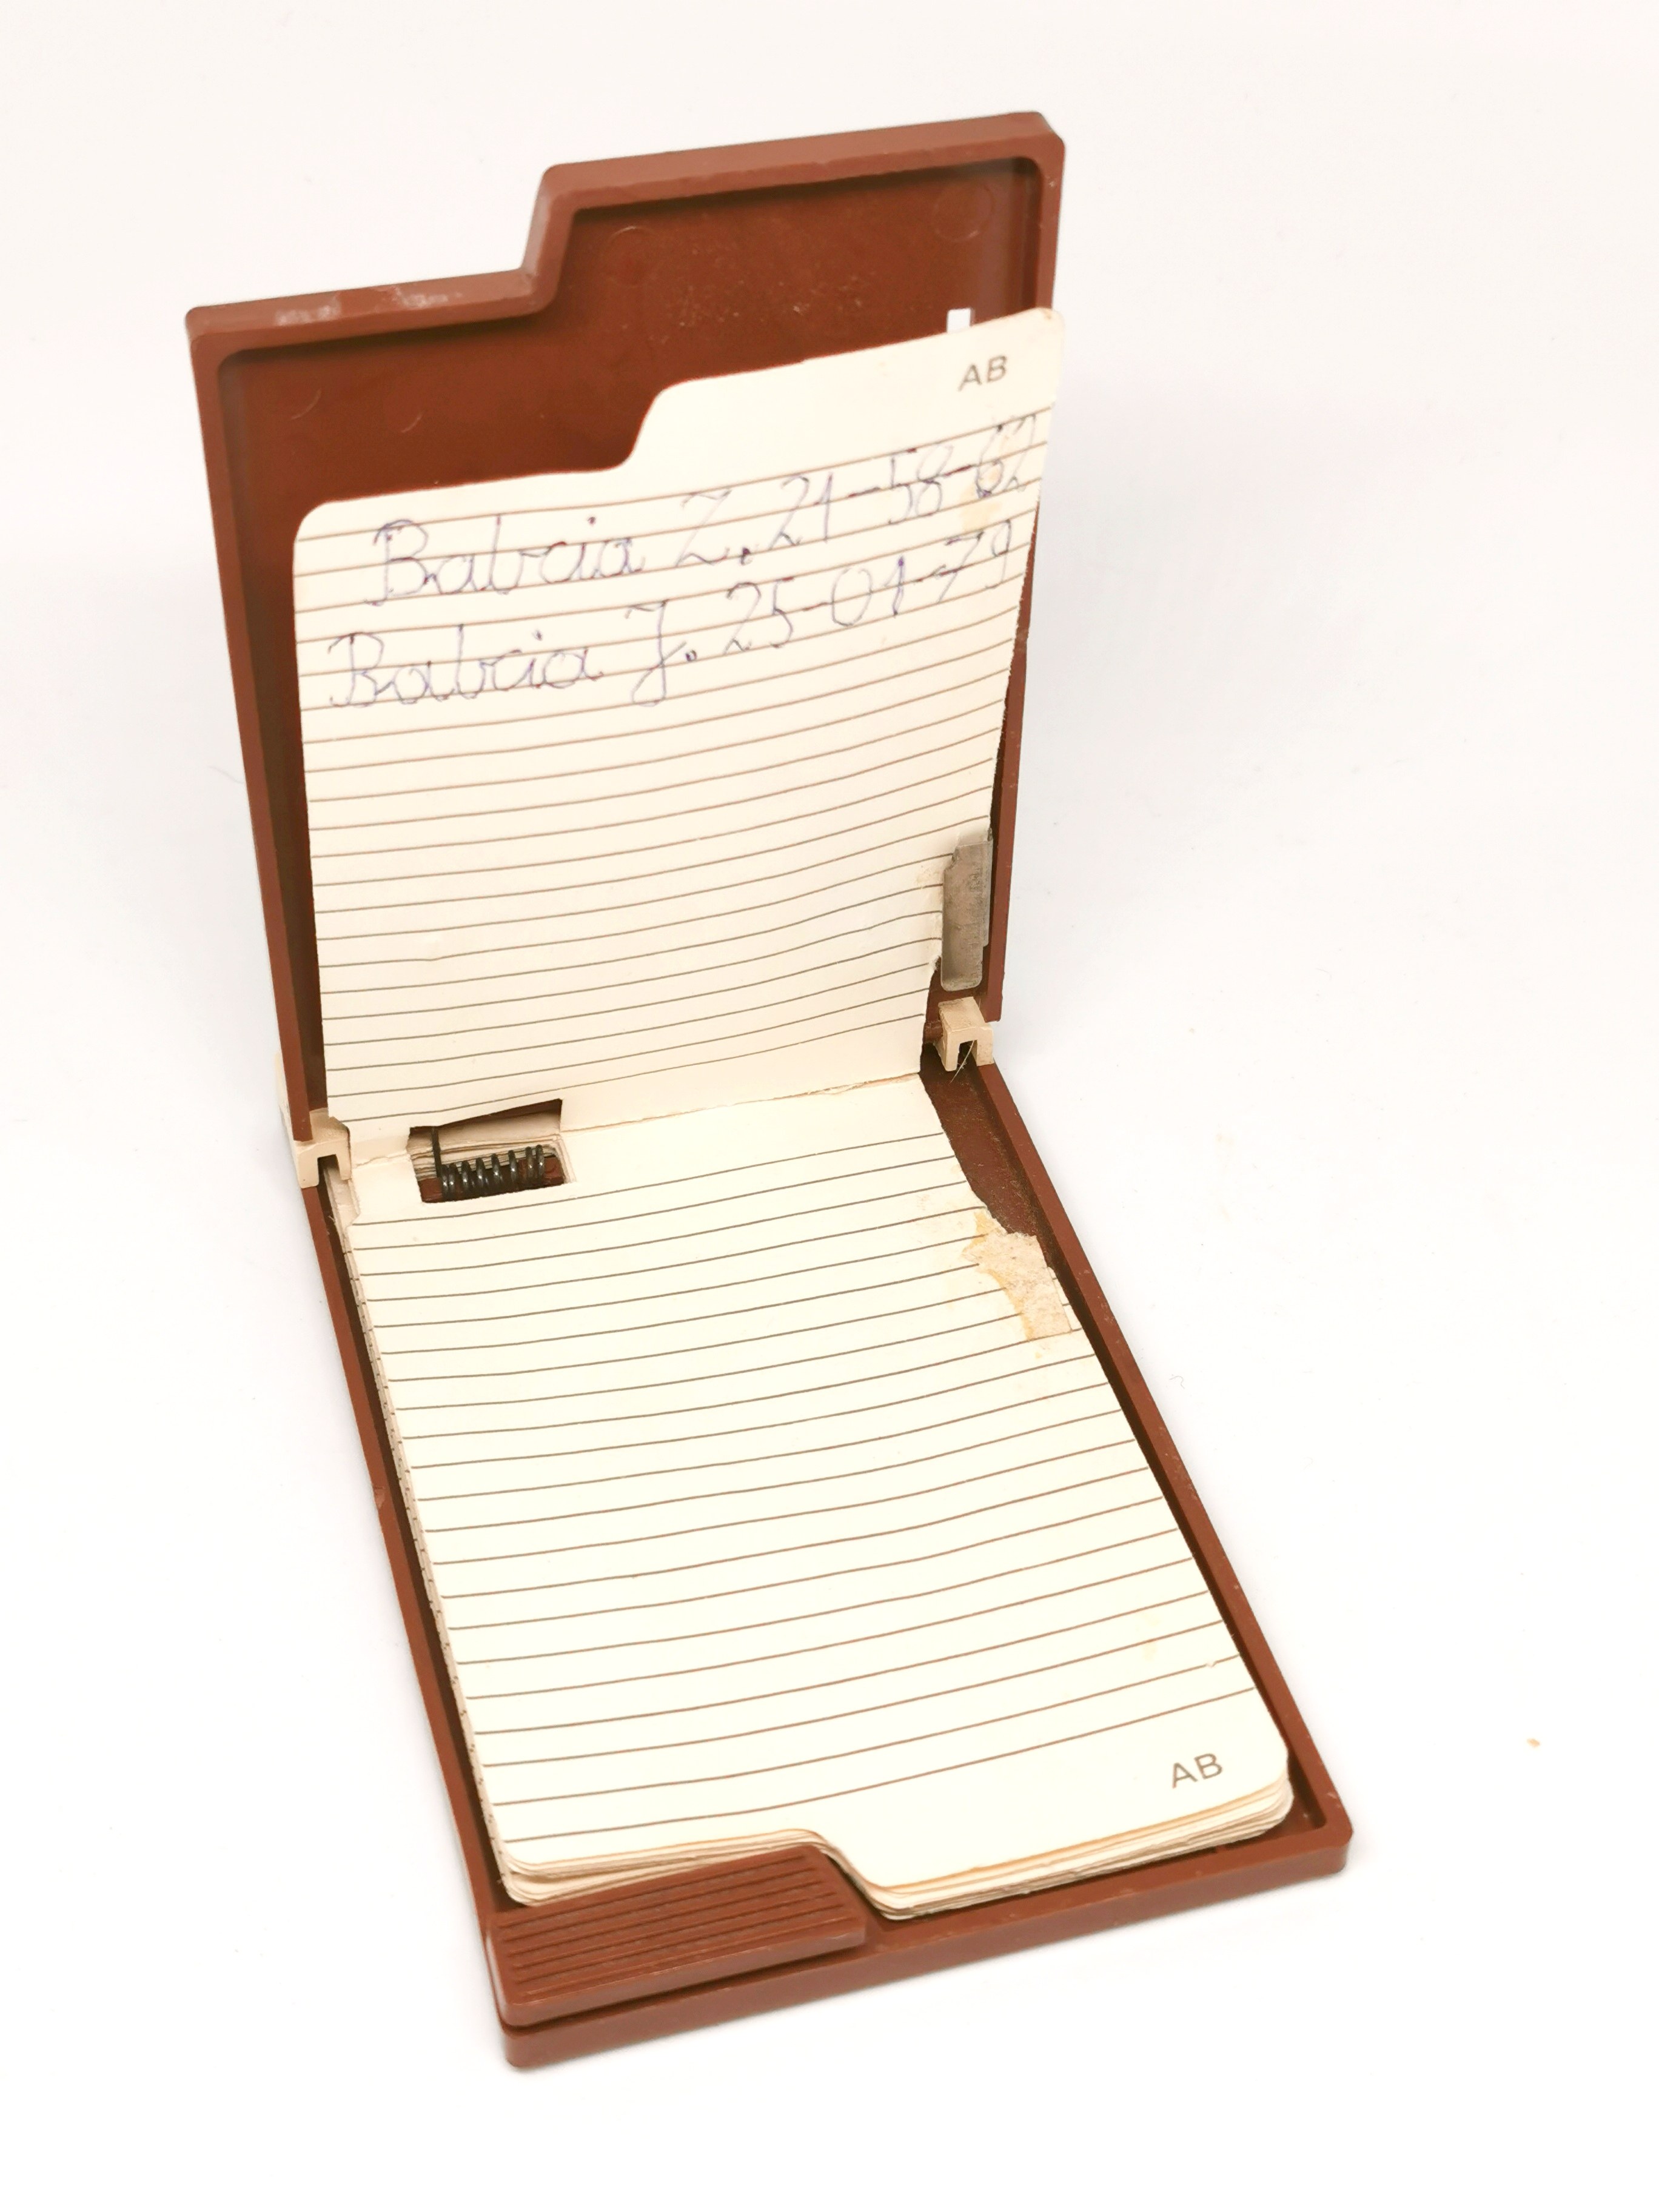 AB
Babcia Z. 21-58-62
Babcia J. 25-01-79
AB